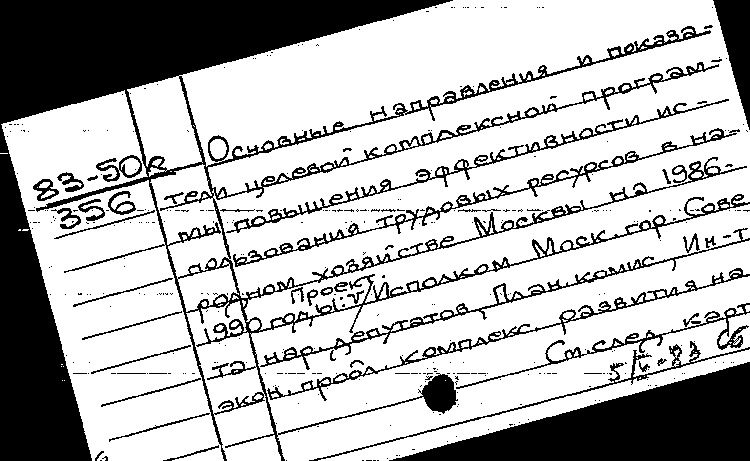 83-50к
356
Основные направления и показа-
тели целевой комплексной програм-
мы повышения эффективности ис-
пользования трудовых ресурсов в на-
родном хозяйстве Москвы на 1986-
1990 годы: Проект. / Исполком Моск. гор. Сове
та нар. депутатов, План. комис., Ин-т
экон. пробл. комплекс. развития на
См. след. карт